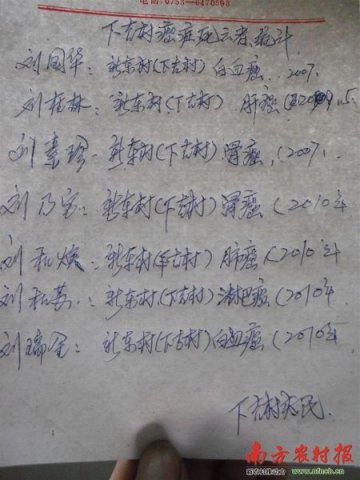 电话:0753-6470593
下古村癌症死亡者统计
刘国华:新东村(下古村)白血癌 2007.
刘桂林:新东村(下古村)肺癌
刘素珍:新东村(下古村)胃癌(2007.
刘乃宝:新东村(下古村)胃癌(2010年
刘 焕:新东村(下古村)肺癌(2010年
刘 :新东村(下古村)淋巴癌(2010年
刘瑞金:新东村(下古村)白血癌(2010年
下古村 民
南方农村报
www.nfncb.cn